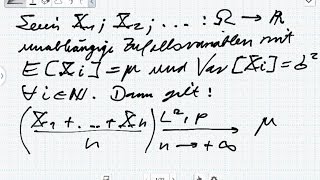 Seien X₁; X₂; ... : Ω → ℝ
unabhängige Zufallsvariablen mit
E[Xi] = μ und Var[Xi] = σ²
∀ i ∈ ℕ. Dann gilt:
(X₁ + ... + Xn / n) L², P / n → +∞ → μ